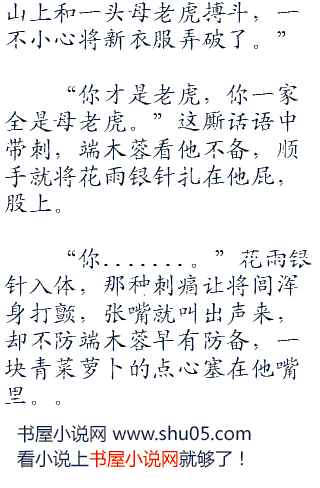 山上和一头母老虎搏斗，一
不小心将新衣服弄破了。”
“你才是老虎，你一家
全是母老虎。”这厮话语中
带刺，端木蓉看他不备，顺
手就将花雨银针扎在他屁，
股上。
“你.......。”花雨银
针入体，那种刺痛让将闾浑
身打颤，张嘴就叫出声来，
却不防端木蓉早有防备，一
块青菜萝卜的点心塞在他嘴
里。。
书屋小说网 www.shu05.com
看小说上书屋小说网就够了！